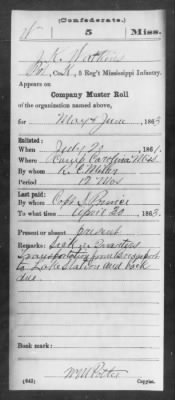 (Confederate.)
5 Miss.
J. K. Mathews
Co. K, 5 Reg't Mississippi Infantry.
Appears on
Company Muster Roll
of the organization named above,
for May & June, 1863.
Enlisted:
When July 20, 1861.
Where Camp Carolina Miss
By whom R. C. Miller
Period 12 Mos
Last paid:
By whom Capt
To what time April 30, 1863.
Present or absent present
Remarks: Sick in Quarters
Transportation from
to Lake Station and back
due.
Book mark:
(642) Copyist.